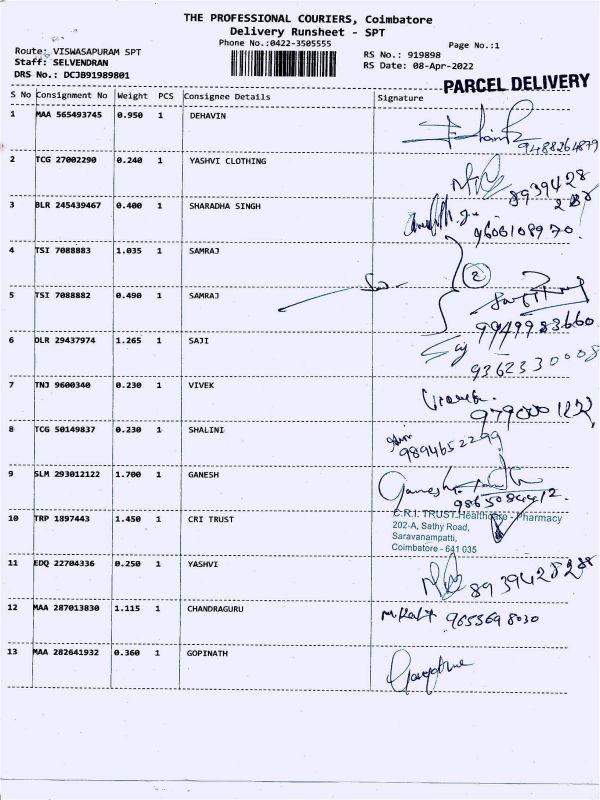 THE PROFESSIONAL COURIERS, Coimbatore
Delivery Runsheet - SPT
Phone No.:0422-3505555
Page No.:1
Route: VISWASAPURAM SPT
Staff: SELVENDRAN
DRS No.: DCJB91989801
RS No.: 919898
RS Date: 08-Apr-2022
PARCEL DELIVERY
S No Consignment No Weight PCS Consignee Details Signature
1 MAA 565493745 0.950 1 DEHAVIN
9488264879
2 TCG 27002290 0.240 1 YASHVI CLOTHING
8939428
288
3 BLR 245439467 0.400 1 SHARADHA SINGH
9606108970.
4 TSI 7088883 1.035 1 SAMRAJ
2
5 TSI 7088882 0.490 1 SAMRAJ
9949983660
6 DLR 29437974 1.265 1 SAJI
Saj
9362330008
7 TNJ 9600340 0.230 1 VIVEK
9790001122
8 TCG 50149837 0.230 1 SHALINI
9894652299
9 SLM 293012122 1.700 1 GANESH
Ganesh
9865084412.
10 TRP 1897443 1.450 1 CRI TRUST
C.R.I. TRUST Healthcare - Pharmacy
202-A, Sathy Road,
Saravanampatti,
Coimbatore - 641 035
11 EDQ 22704336 0.250 1 YASHVI
8939428288
12 MAA 287013830 1.115 1 CHANDRAGURU
9655698030
13 MAA 282641932 0.360 1 GOPINATH